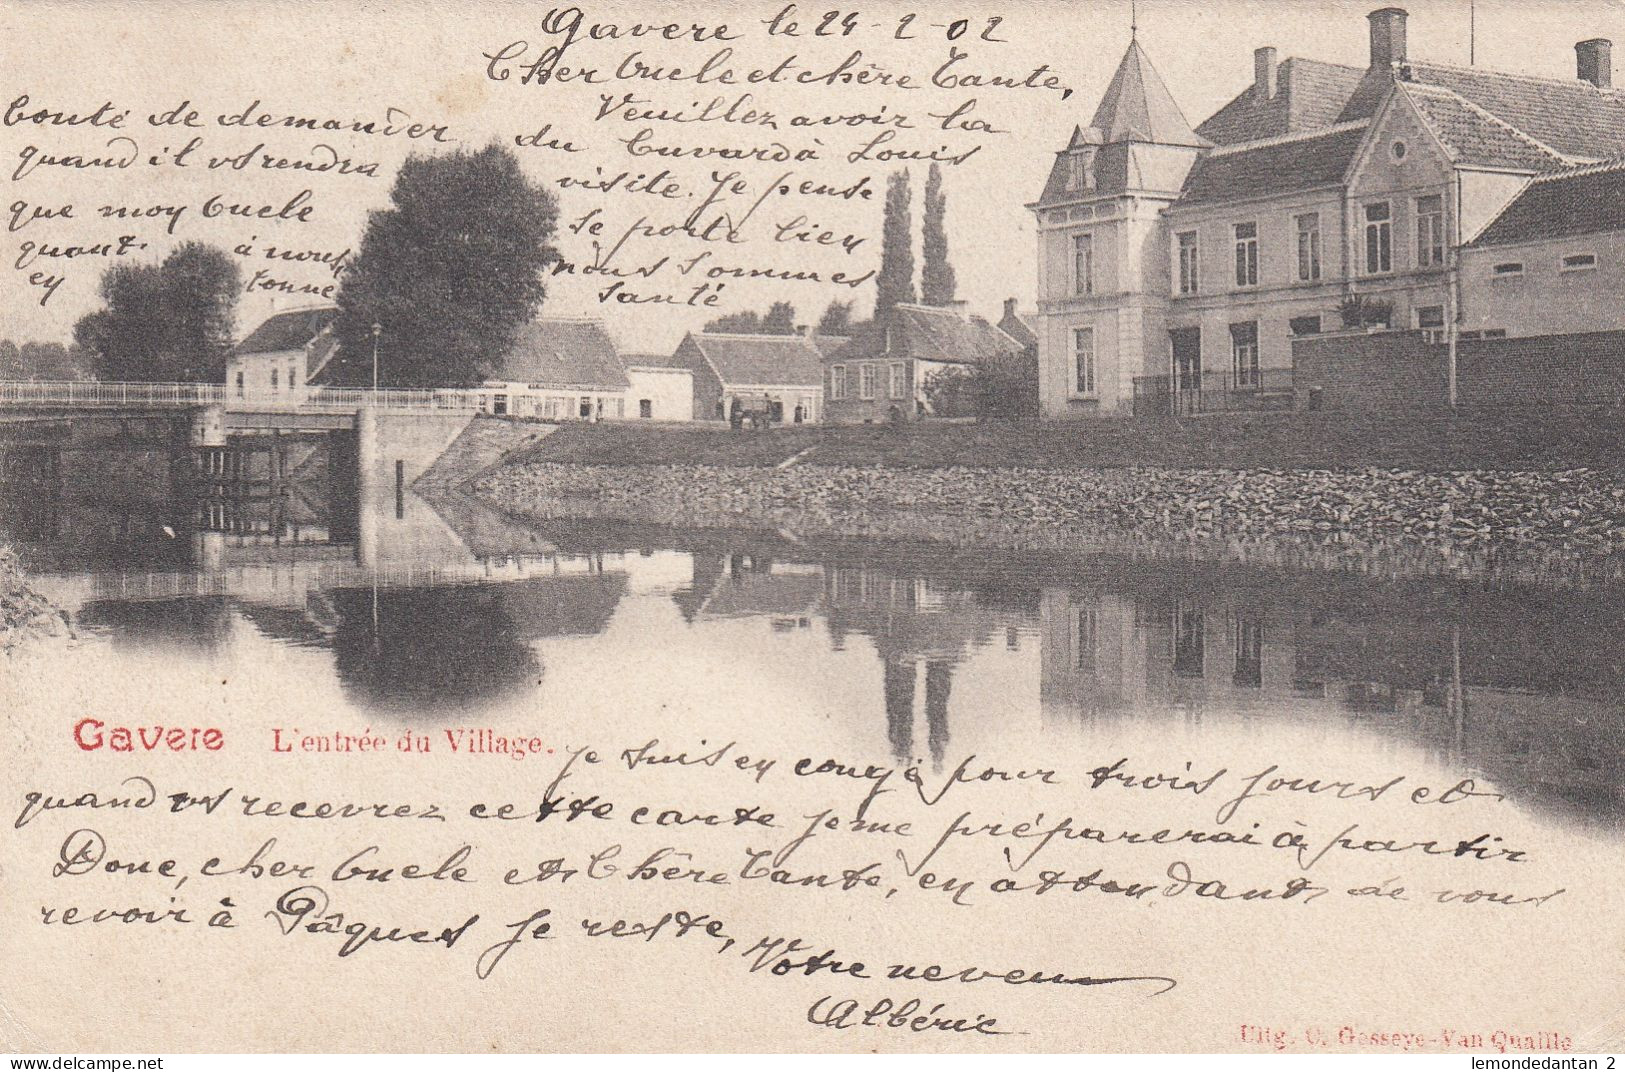 Gavere le 24-2-02
Cher Oncle et chère Tante,
Veuillez avoir la
bonté de demander
du Cuvard à Louis
quand il vs rendra
visite. Je pense
que moy Oncle
se porte bien
quant à nous
nous sommes
en bonne
santé
Gavere L'entrée du Village.
Je suis en congé pour trois jours et
quand vs recevrez cette carte je me préparerai à partir
Donc, cher Oncle et Chère Tante, en attendant de vous
revoir à Pâques je reste,
Votre neveu
Albéric
Uitg. C. Gesseye-Van Quaille
lemondedantan 2
www.delcampe.net